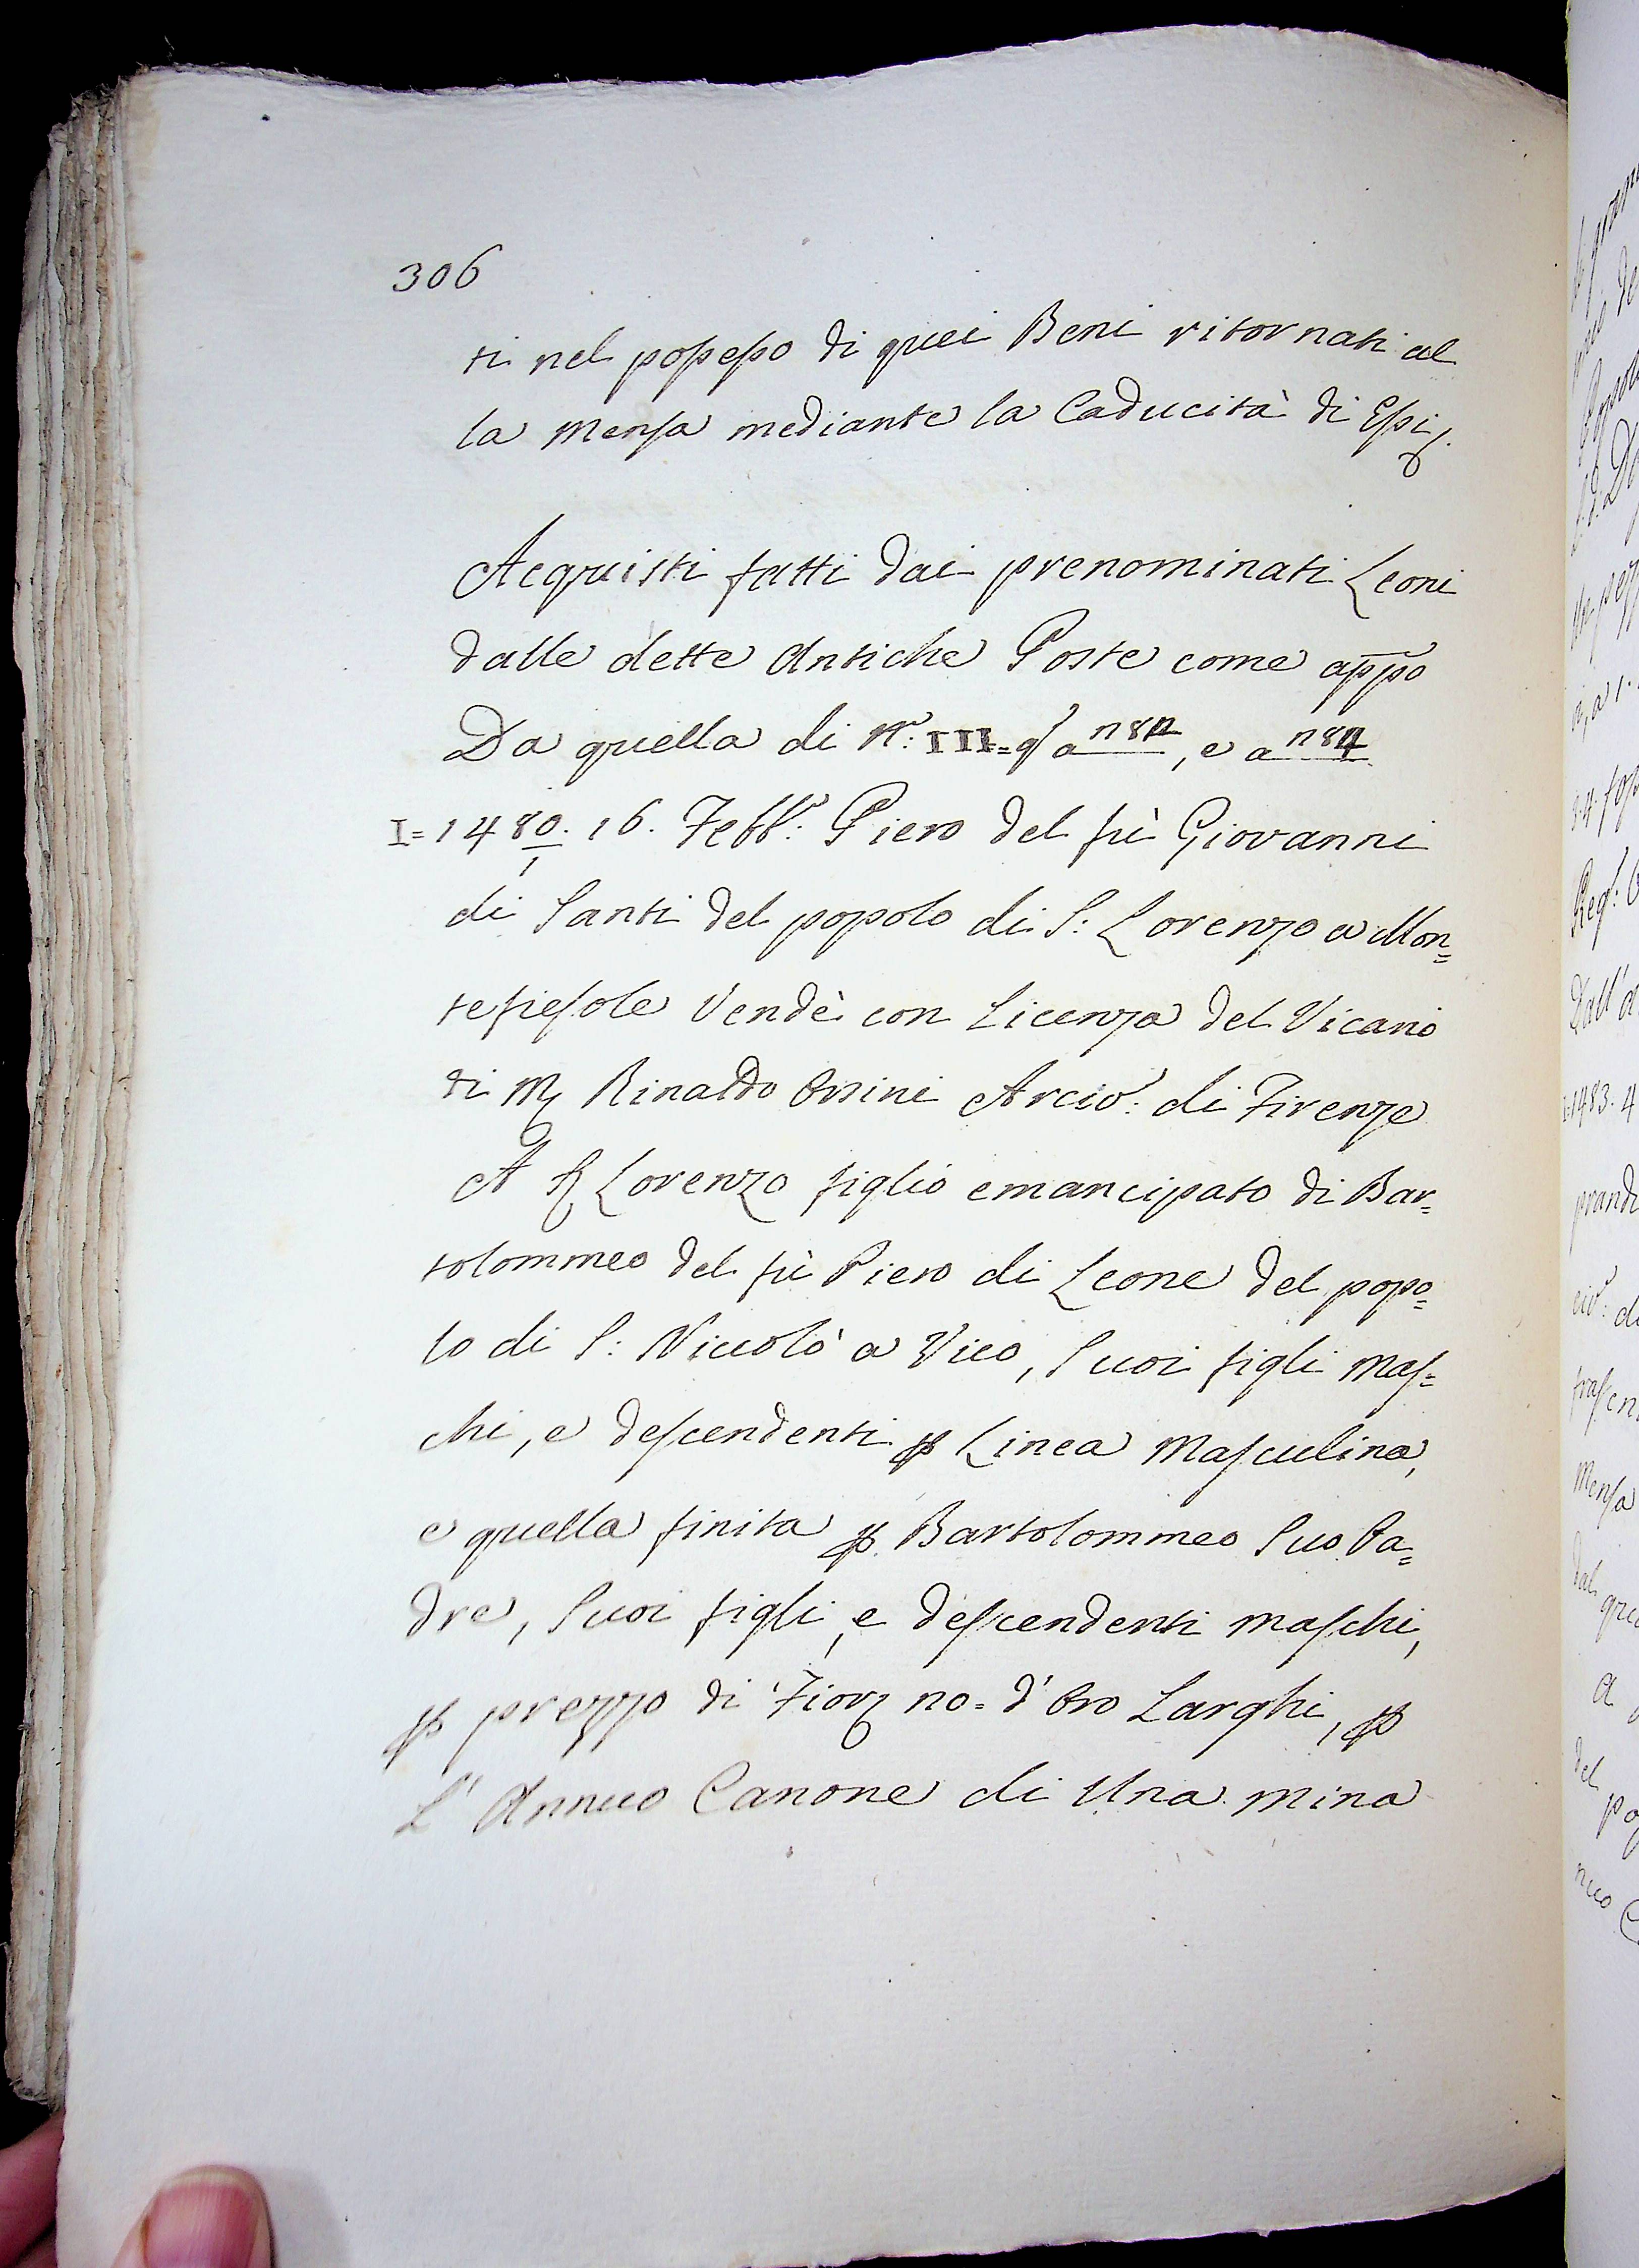 306
ti nel possesso di quei Beni ritornati al
la Mensa mediante la Caducità di Essi.
Acquisti fatti dai prenominati Leoni
dalle dette Antiche Poste come appo
Da quella di N.o: III=
I= 1480/1. 16. Febb.o: Piero del fù Giovanni
di Santi del popolo di S: Lorenzo a Mon=
tefiesole Vendè con Licenza del Vicario
di M Rinaldo Orsini Arcivo: di Firenze
A S Lorenzo figlio emancipato di Bar=
tolommeo del fù Piero di Leone del popo=
lo di S: Niccolò a Vico, Suoi figli Mas=
chi, e descendenti p Linea Masculina,
e quella finita p Bartolommeo Suo Pa=
dre, Suoi figli, e descendenti maschi,
p prezzo di Fior d'Oro Larghi, p
L'Annuo Canone di Una mina